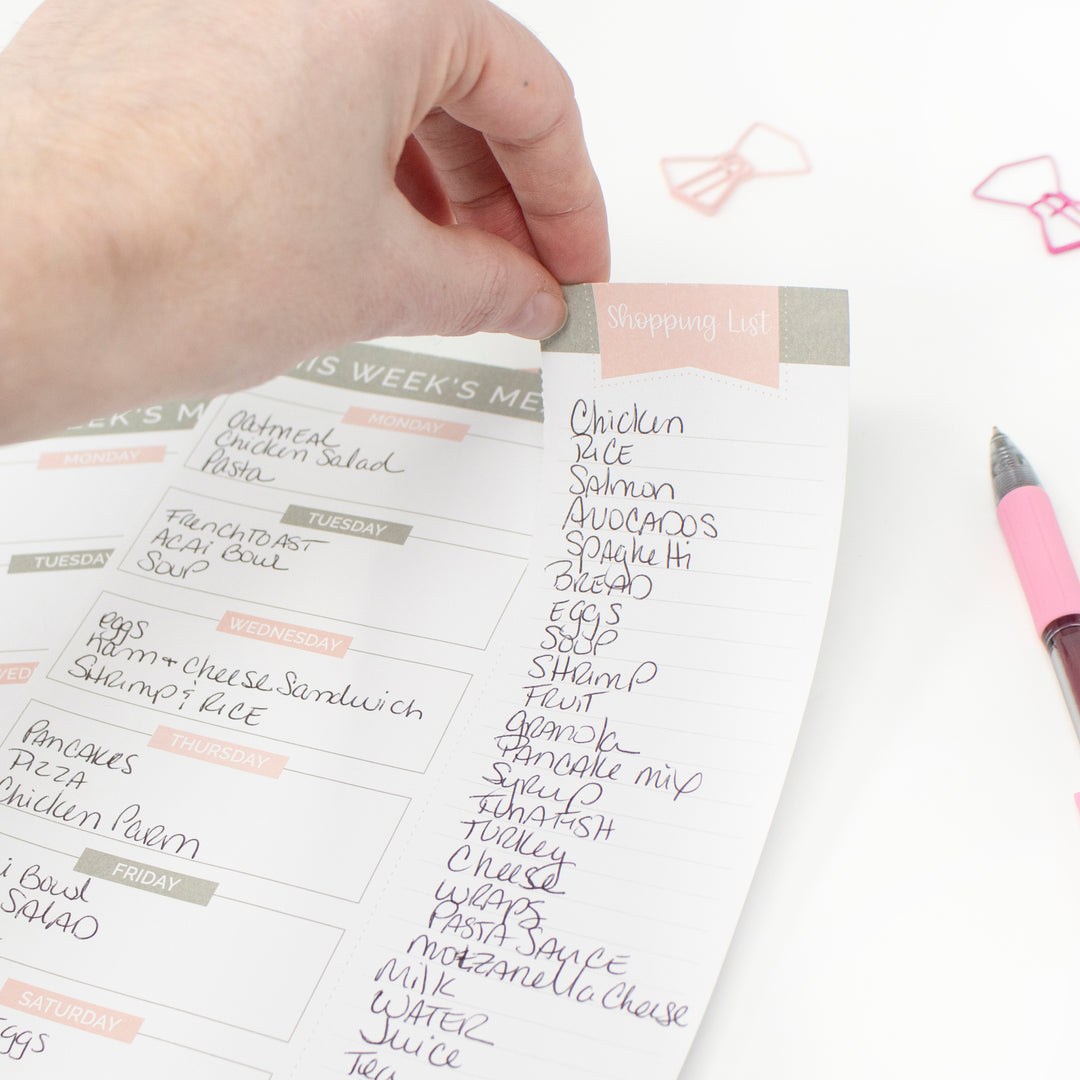 EEK'S M
MONDAY
TUESDAY
WED
HIS WEEK'S ME
MONDAY
OATMEAL
Chicken Salad
Pasta
TUESDAY
FRENCH TOAST
ACAi BOWL
SOUP
WEDNESDAY
eggs
Ham + cheese Sandwich
SHRIMP & RICE
THURSDAY
PANCAKES
PIZZA
Chicken PARM
FRIDAY
i Bowl
SALAD
SATURDAY
ggs
Shopping List
Chicken
RICE
SAlmon
AVOCADOS
SPAgheHi
BREAD
EGGS
SOUP
SHRIMP
FRUIT
GRANOLA
PANCAKE MIX
SYRUP
TUNAFISH
TURKEY
Cheese
WRAPS
PASTA SAUCE
MOZZAREllA Cheese
Milk
WATER
Juice